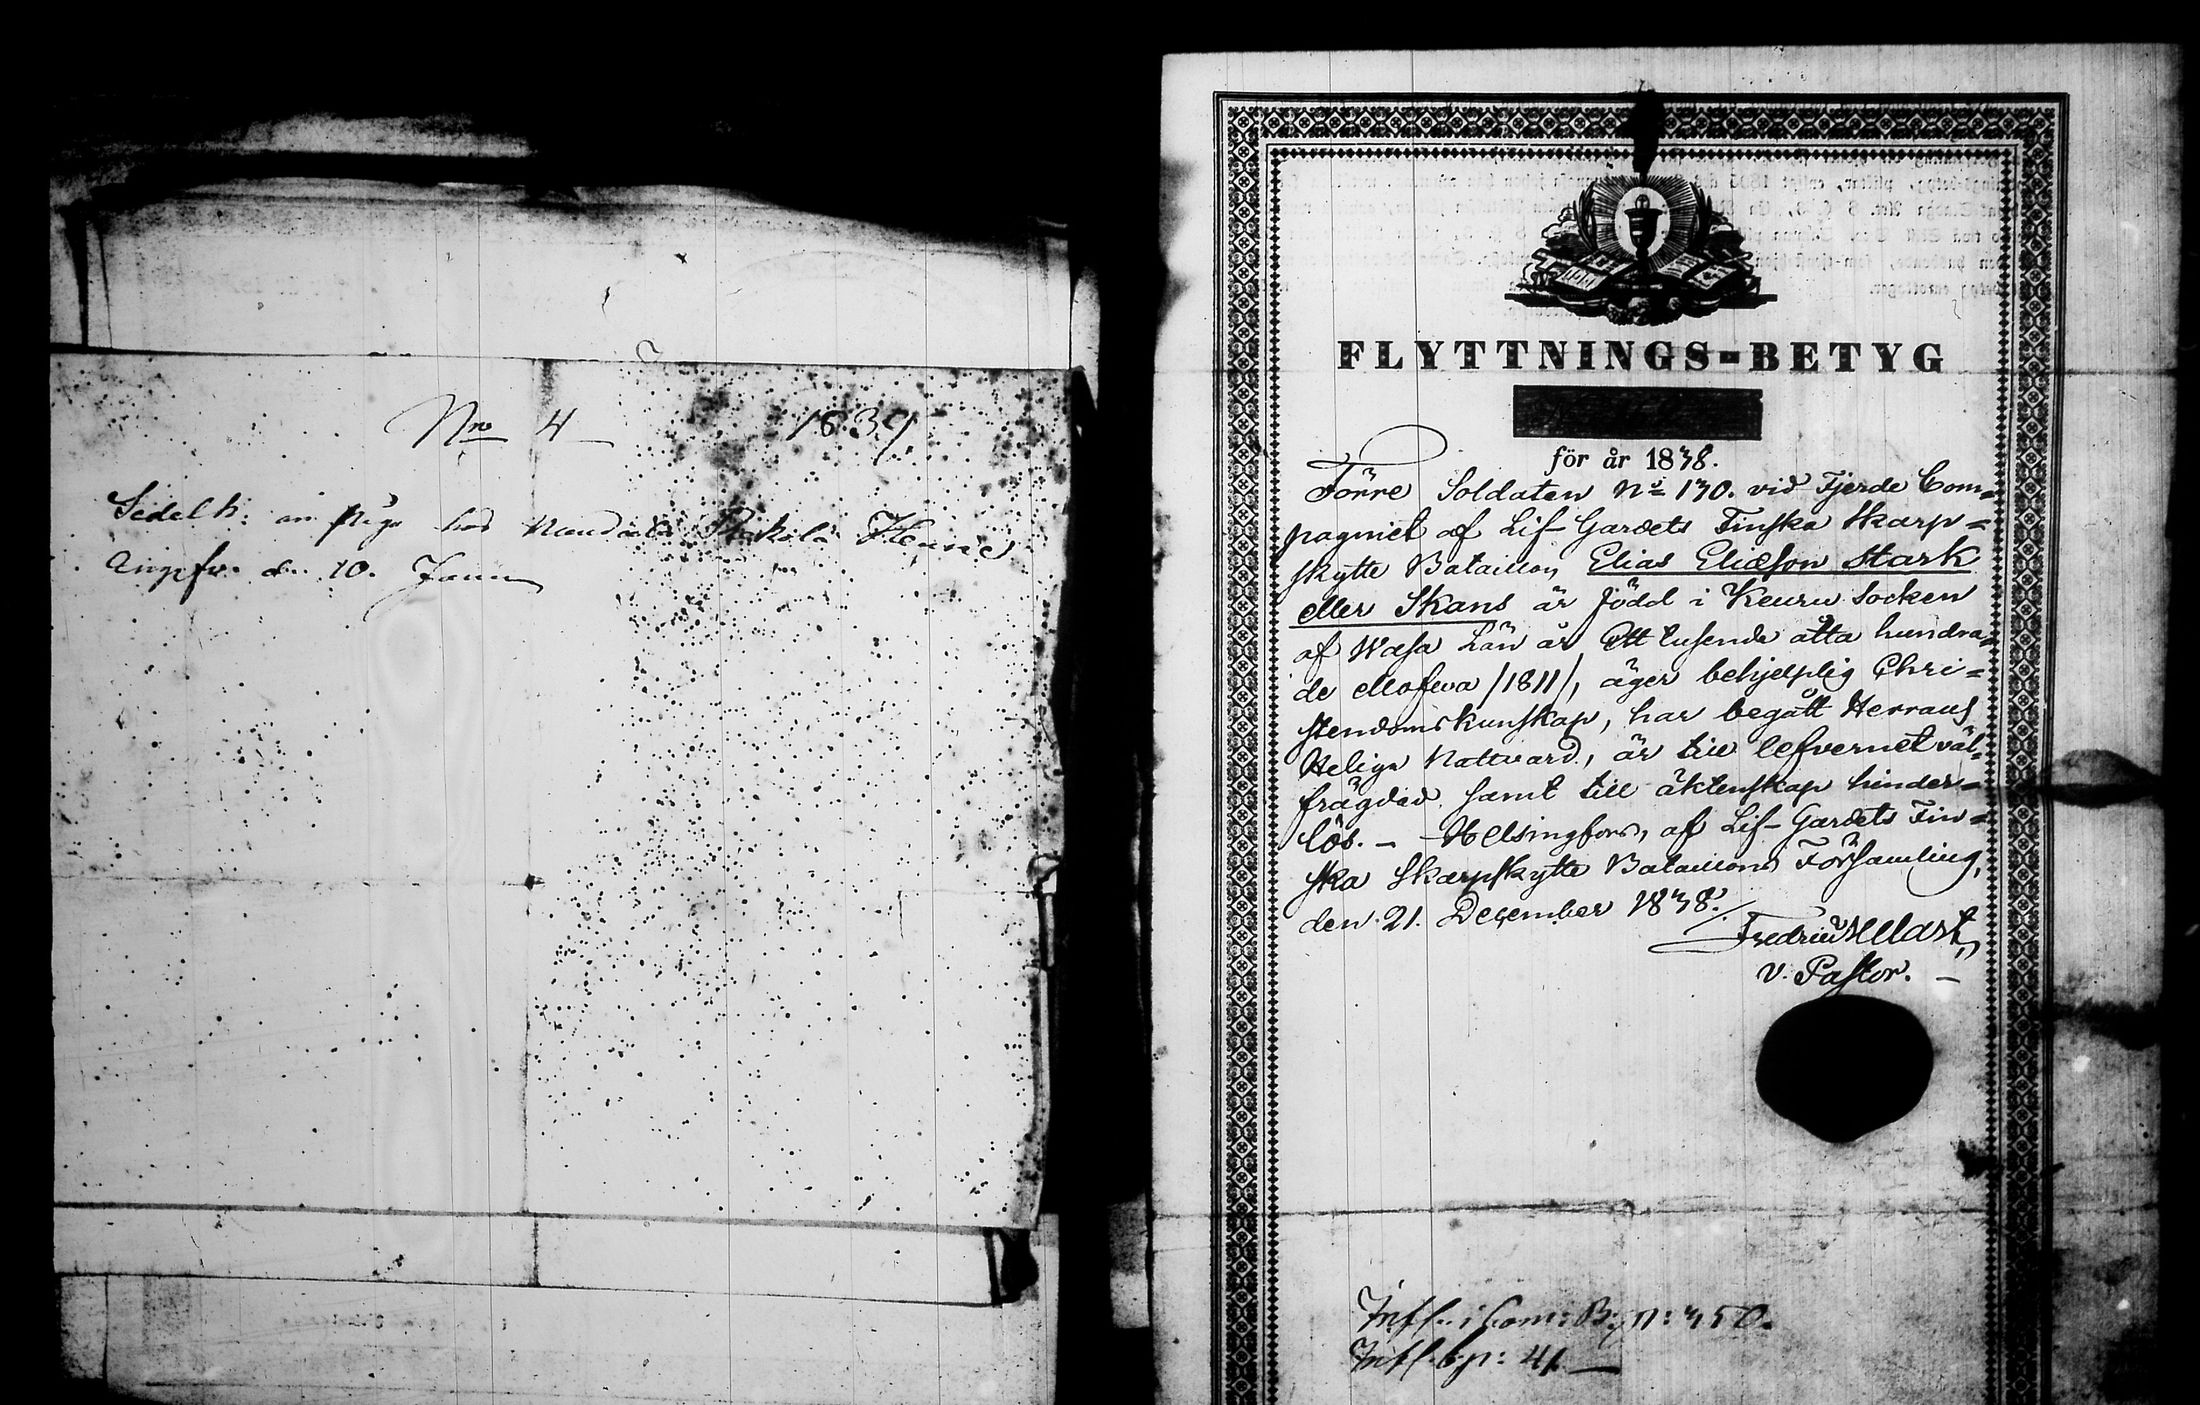 Nro 4 1839
Sedel h: om Piga hos
Angifv. den 10. Janu
FLYTTNINGS-BETYG
för år 1838.
Förre Soldaten No 130. vid Fjerde Com=
pagniet af Lif-Gardets Finska Skarp=
skytte Bataillon, Elias Eliasson Stark
eller Skans är född i Keuru Socken
af Wasa Län år Ett tusende åtta hundra=
de Mofva /1811/, äger behjelplig Chri=
stendomskunskap, har begått Herrans
Heliga Nattvard, är till lefvernet väl-
frägdad samt till äktenskap hinder=
lös. – Helsingfors, af Lif-Gardets Fin=
ska Skarpskytte Bataillons Församling,
den 21. December 1838.
Fredric
v. Pastor. –
Infl. i Com: B: p: 350.
Infl. b. p: 41.